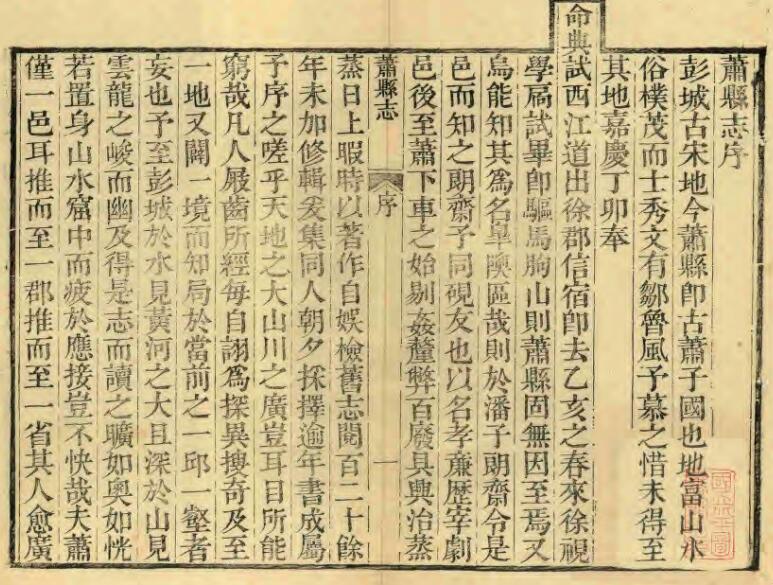 蕭縣志序
彭城古宋地今蕭縣即古蕭子國也地富山水
俗樸茂而士秀文有鄒魯風予慕之惜未得至
其地嘉慶丁卯奉
命典試西江道出徐郡信宿即去乙亥之春來徐視
學局試畢即驅馬朐山則蕭縣固無因至焉又
烏能知其為名皐隩區哉則於潘子朗齋令是
邑而知之朗齋予同硯友也以名孝亷歴宰劇
邑後至蕭下車之始剔姦釐弊百廢具興治蒸
蕭縣志
序
一
蒸日上暇時以著作自娛檢舊志閱百二十餘
年未加修輯爰集同人朝夕採擇逾年書成屬
予序之嗟乎天地之大山川之廣豈耳目所能
窮哉凡人屐齒所經每自詡為探異搜奇及至
一地又闢一境而知局於當前之一邱一壑者
妄也予至彭城於水見黃河之大且深於山見
雲龍之峻而幽及得是志而讀之曠如奧如恍
若置身山水窟中而疲於應接豈不快哉夫蕭
僅一邑耳推而至一郡推而至一省其人愈廣